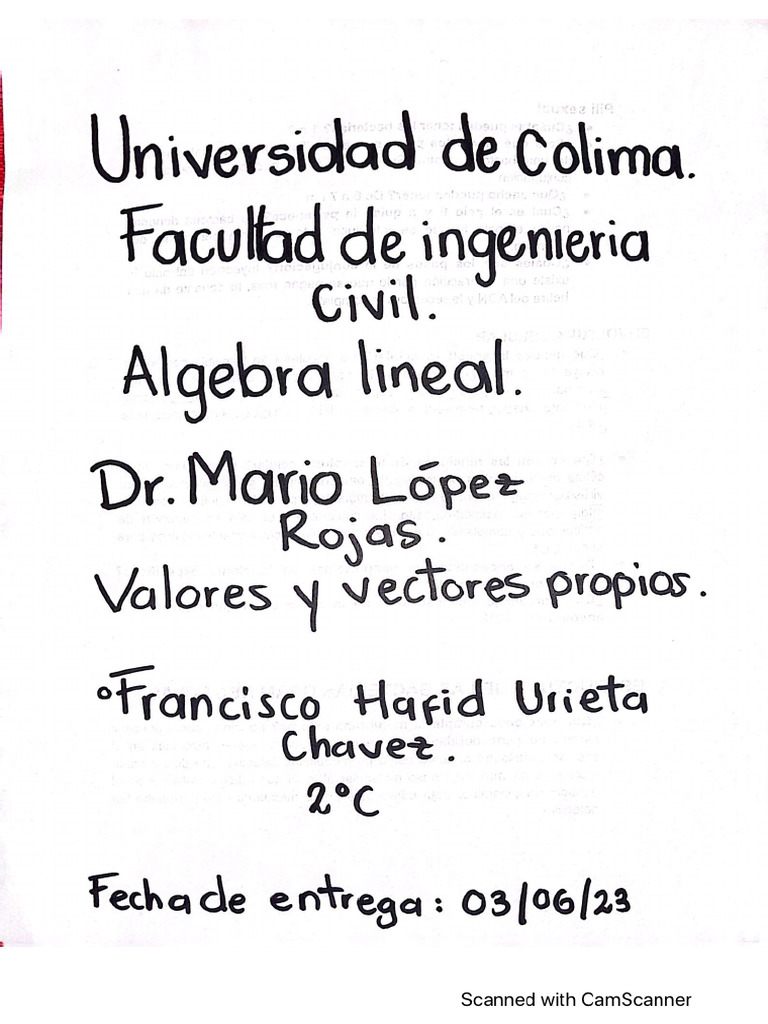 Universidad de Colima.
Facultad de ingenieria
Civil.
Algebra lineal.
Dr. Mario López
Rojas.
Valores y vectores propios.
°Francisco Hafid Urieta
Chavez.
2°C
Fecha de entrega: 03/06/23
Scanned with CamScanner